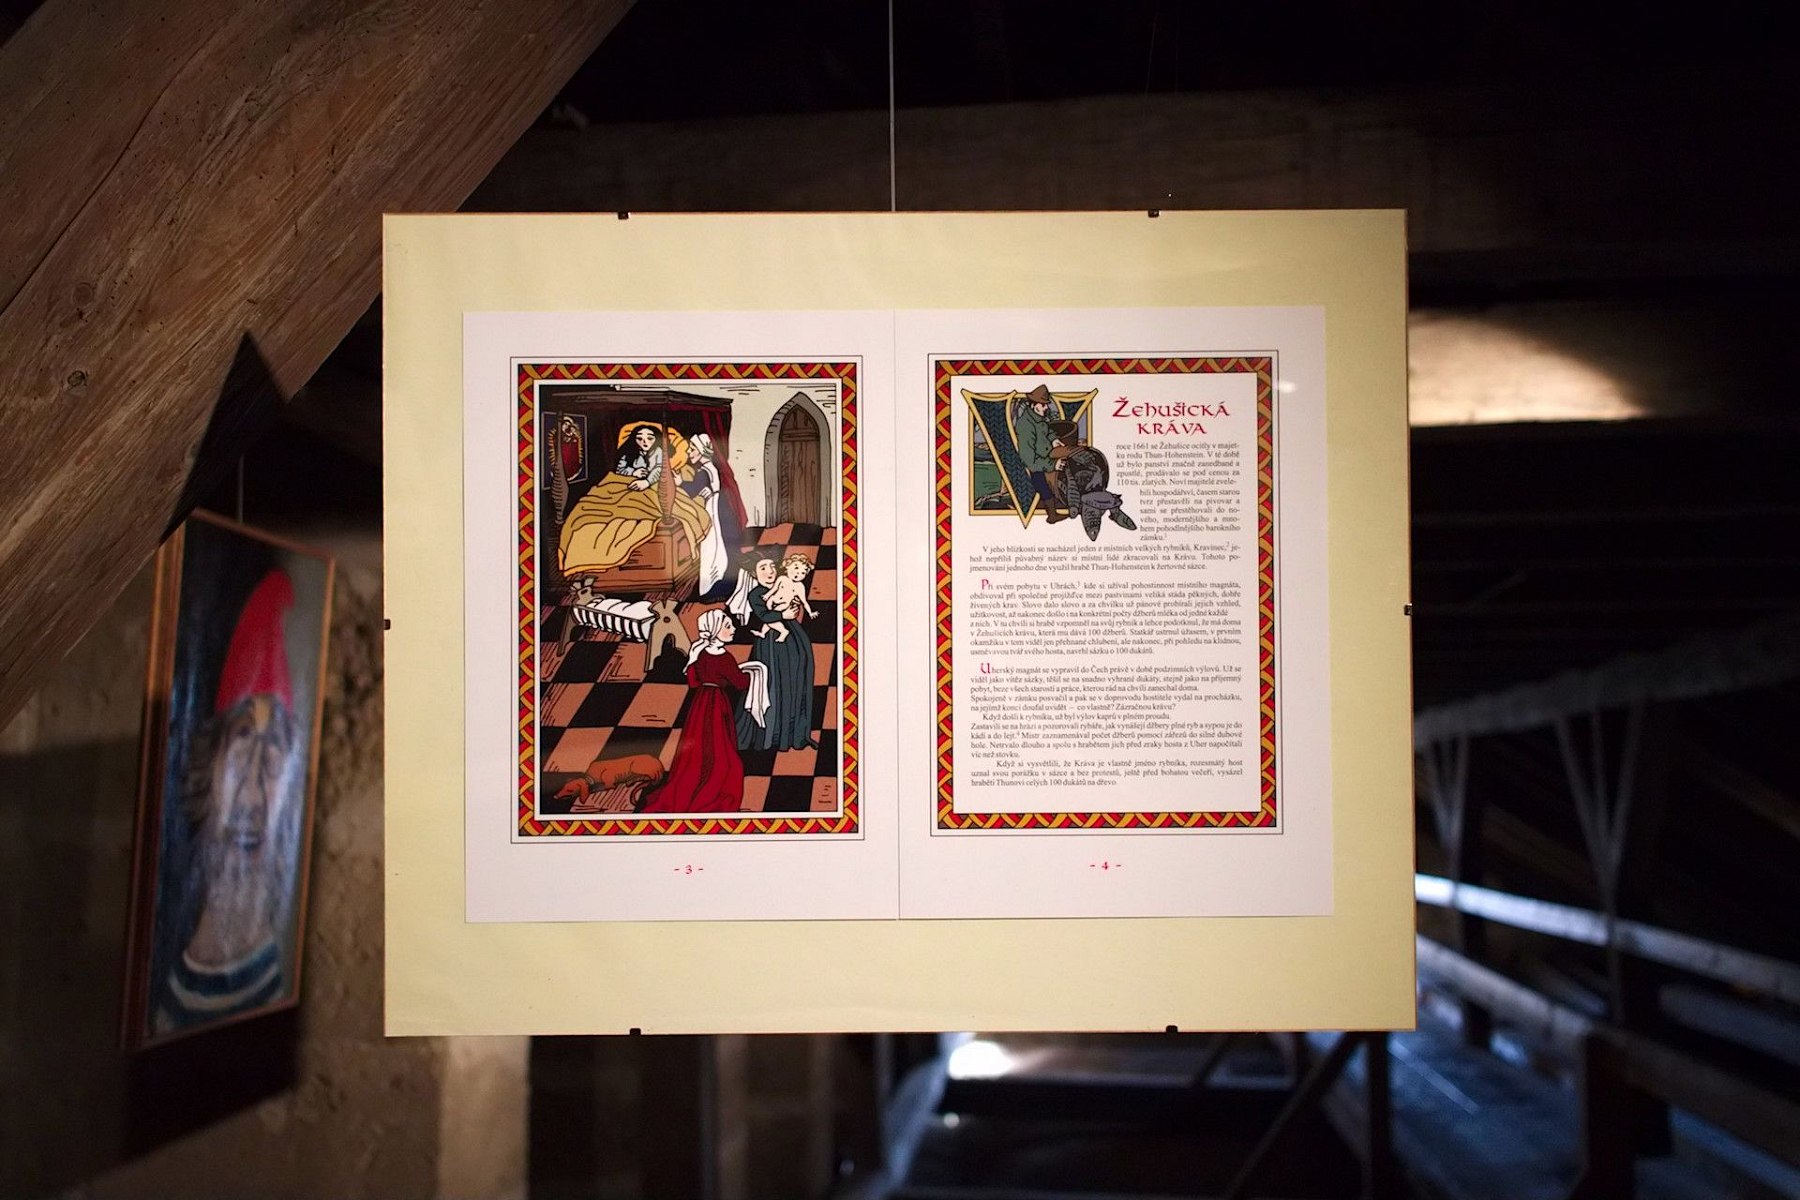 ŽEHUŠICKÁ
KRÁVA
V
roce 1661 se Žehušice ocitly v majet-
ku rodu Thun-Hohenstein. V té době
už bylo panství značně zanedbané a
zpustlé, prodávalo se pod cenou za
110 tis. zlatých. Noví majitelé zvele-
bili hospodářství, časem starou
tvrz přestavěli na pivovar a
sami se přestěhovali do no-
vého, modernějšího a mno-
hem pohodlnějšího barokního
zámku.¹
V jeho blízkosti se nacházel jeden z místních velkých rybníků, Kravinec,² je-
hož nepříliš půvabný název si místní lidé zkracovali na Krávu. Tohoto po-
jmenování jednoho dne využil hrabě Thun-Hohenstein k žertovné sázce.
Při svém pobytu v Uhrách,³ kde si užíval pohostinnost místního magnáta,
obdivoval při společné projížďce mezi pastvinami veliká stáda pěkných, dobře
živených krav. Slovo dalo slovo a za chvilku už pánové probírali jejich vzhled,
užitkovost, až nakonec došlo i na konkrétní počty džberů mléka od jedné každé
z nich. V tu chvíli si hrabě vzpomněl na svůj rybník a lehce podotknul, že má doma
v Žehušicích krávu, která mu dává 100 džberů. Statkář ustrnul úžasem, v prvním
okamžiku v tom viděl jen přehnané chlubení, ale nakonec, při pohledu na klidnou,
usměvavou tvář svého hosta, navrhl sázku o 100 dukátů.
Uherský magnát se vypravil do Čech právě v době podzimních výlovů. Už se
viděl jako vítěz sázky, těšil se na snadno vyhrané dukáty, stejně jako na příjemný
pobyt, beze všech starostí a práce, kterou rád na chvíli zanechal doma.
Spokojeně v zámku posvačil a pak se v doprovodu hostitele vydal na procházku,
na jejímž konci doufal uvidět – co vlastně? Zázračnou krávu?
Když došli k rybníku, už byl výlov kaprů v plném proudu.
Zastavili se na hrázi a pozorovali rybáře, jak vynášejí džbery plné ryb a sypou je do
kádí a do lejt.⁴ Mistr zaznamenával počet džberů pomocí zářezů do silné dubové
hole. Netrvalo dlouho a spolu s hrabětem jich před zraky hosta z Uher napočítali
víc než stovku.
Když si vysvětlili, že Kráva je vlastně jméno rybníka, rozesmátý host
uznal svou porážku v sázce a bez protestů, ještě před bohatou večeří, vysázel
hraběti Thunovi celých 100 dukátů na dřevo.
- 3 -
- 4 -